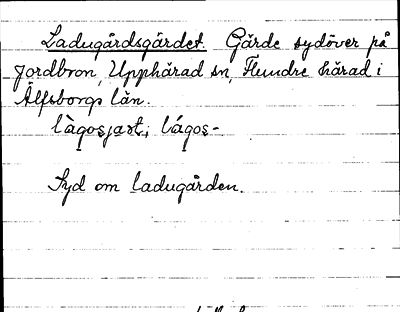 Ladugårdsgärdet. Gärde sydöver på
Jordbron, Upphärad sn, Flundre härad i
Älfsborgs län.
làgosjart; lágos-
Syd om ladugården.